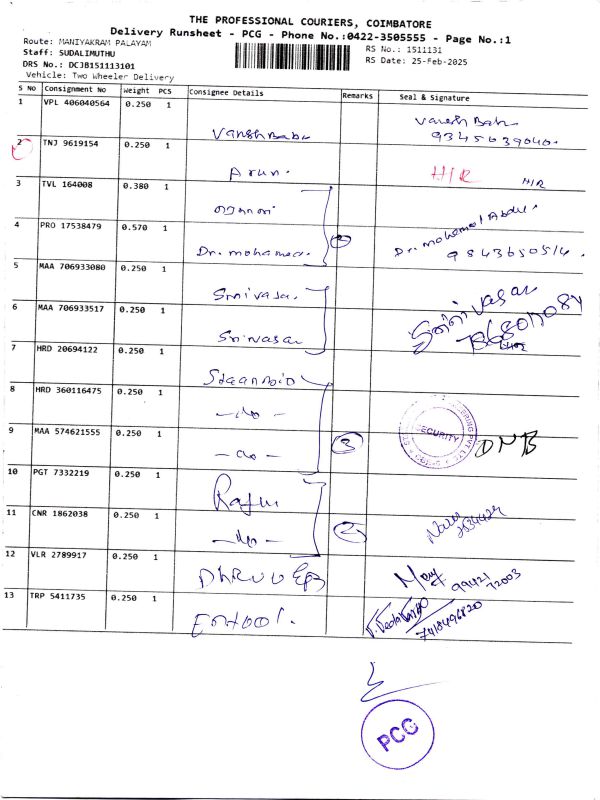 THE PROFESSIONAL COURIERS, COIMBATORE
Delivery Runsheet - PCG - Phone No.:0422-3505555 - Page No.:1
Route: MANIYAKRAM PALAYAM
RS No.: 1511131
Staff: SUDALIMUTHU
RS Date: 25-Feb-2025
DRS No.: DCJB151113101
Vehicle: Two Wheeler Delivery
S No Consignment No Weight PCS Consignee Details Remarks Seal & Signature
1 VPL 406040564 0.250 1 Vanesh Babu Vanesh Babu
9345039040.
2 TNJ 9619154 0.250 1 Arun. H/R H/R
3 TVL 164008 0.380 1
4 PRO 17538479 0.570 1 Dr. mohamed. 2 Dr. mohamed Abdul.
9843650514.
5 MAA 706933080 0.250 1 Srinivasa.
6 MAA 706933517 0.250 1 Srinivasan Srinivasan
7 HRD 20694122 0.250 1
8 HRD 360116475 0.250 1 -do-
9 MAA 574621555 0.250 1 -do- 3 SECURITY DNB
10 PGT 7332219 0.250 1
11 CNR 1862038 0.250 1 -do- 2
12 VLR 2789917 0.250 1 99421
72003
13 TRP 5411735 0.250 1 7418496820
PCG